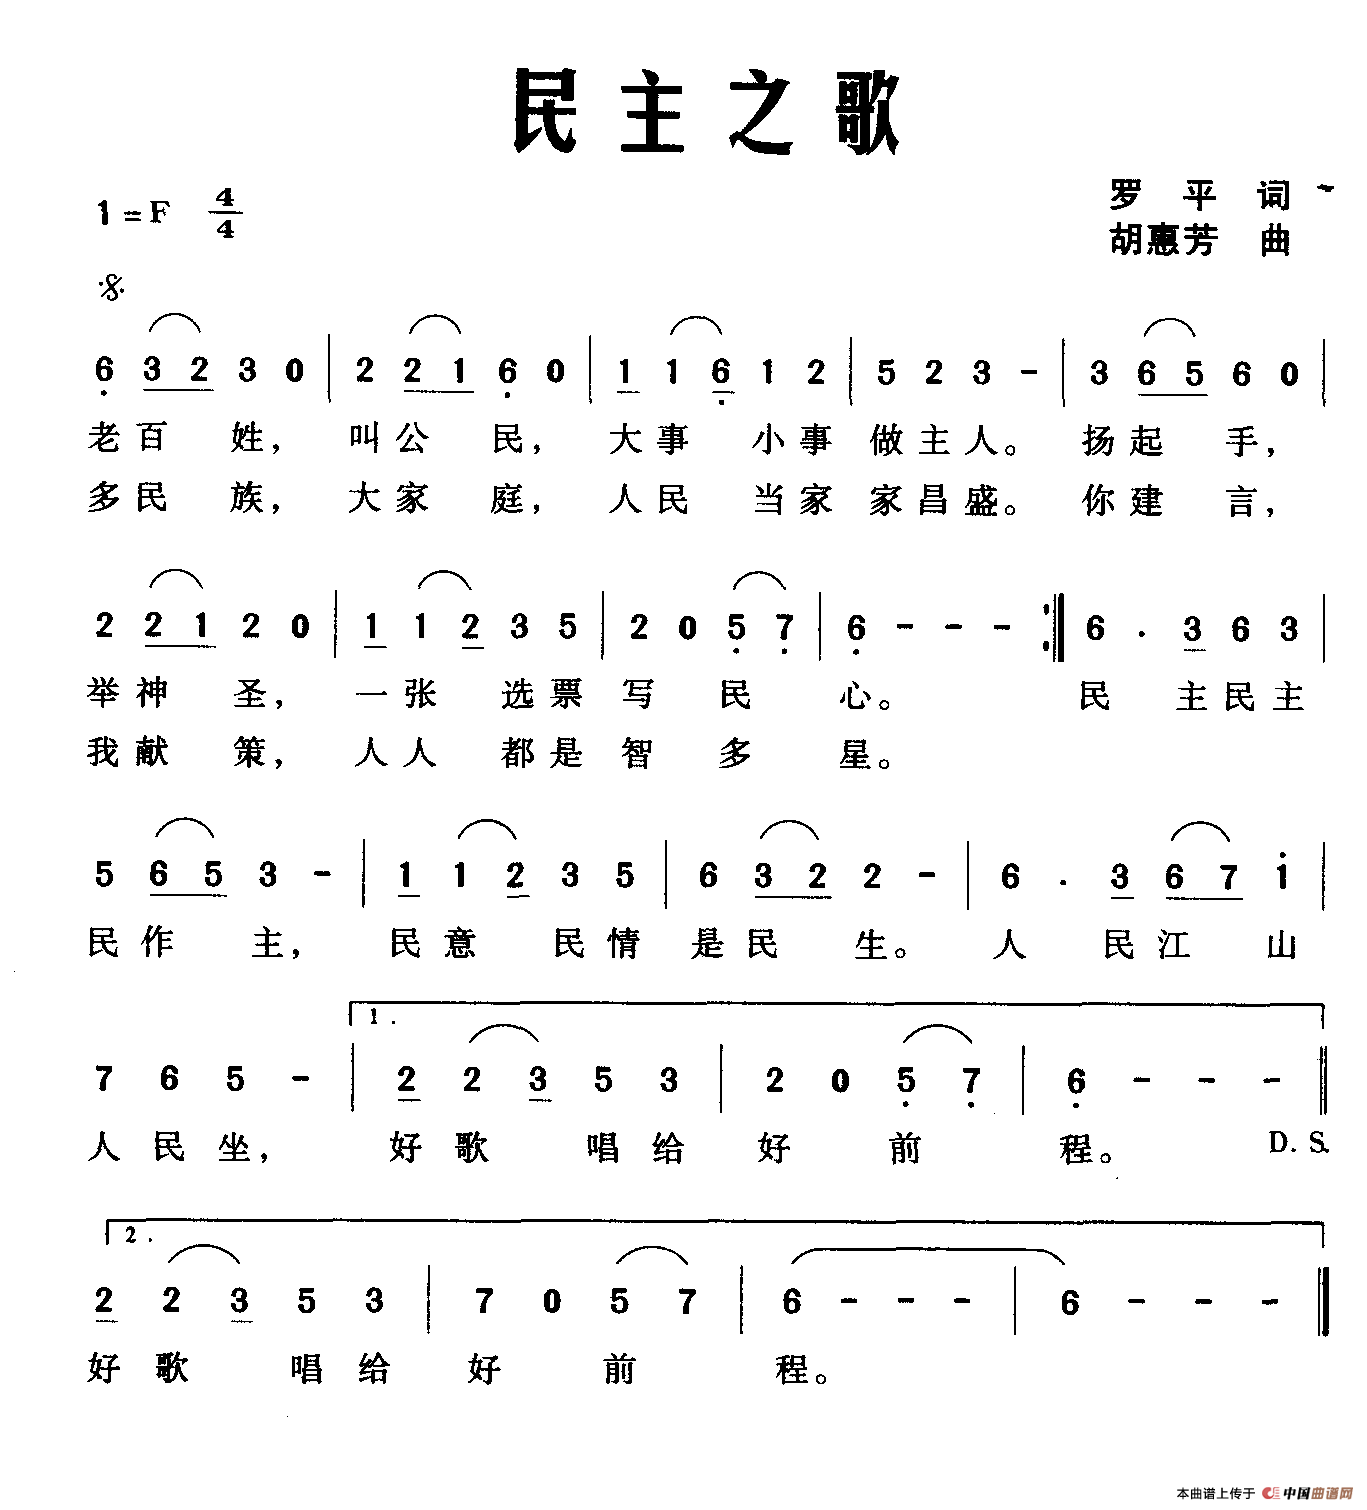 民主之歌
1=F 4/4
罗 平 词
胡惠芳 曲
6 3 2 3 0 | 2 2 1 6 0 | 1 1 6 1 2 | 5 2 3 - | 3 6 5 6 0 |
老百 姓, 叫公 民, 大事 小事 做主人。 扬起 手,
多民 族, 大家 庭, 人民 当家 家昌盛。 你建 言,
2 2 1 2 0 | 1 1 2 3 5 | 2 0 5 7 | 6 - - - :‖ 6 . 3 6 3 |
举神 圣, 一张 选票 写 民 心。 民 主民主
我献 策, 人人 都是 智 多 星。
5 6 5 3 - | 1 1 2 3 5 | 6 3 2 2 - | 6 . 3 6 7 1 |
民作 主, 民意 民情 是民 生。 人 民江 山
1.
7 6 5 - | 2 2 3 5 3 | 2 0 5 7 | 6 - - - ‖
人民坐, 好歌 唱给 好 前 程。 D. S.
2.
2 2 3 5 3 | 7 0 5 7 | 6 - - - | 6 - - - ‖
好歌 唱给 好 前 程。
本曲谱上传于 中国曲谱网